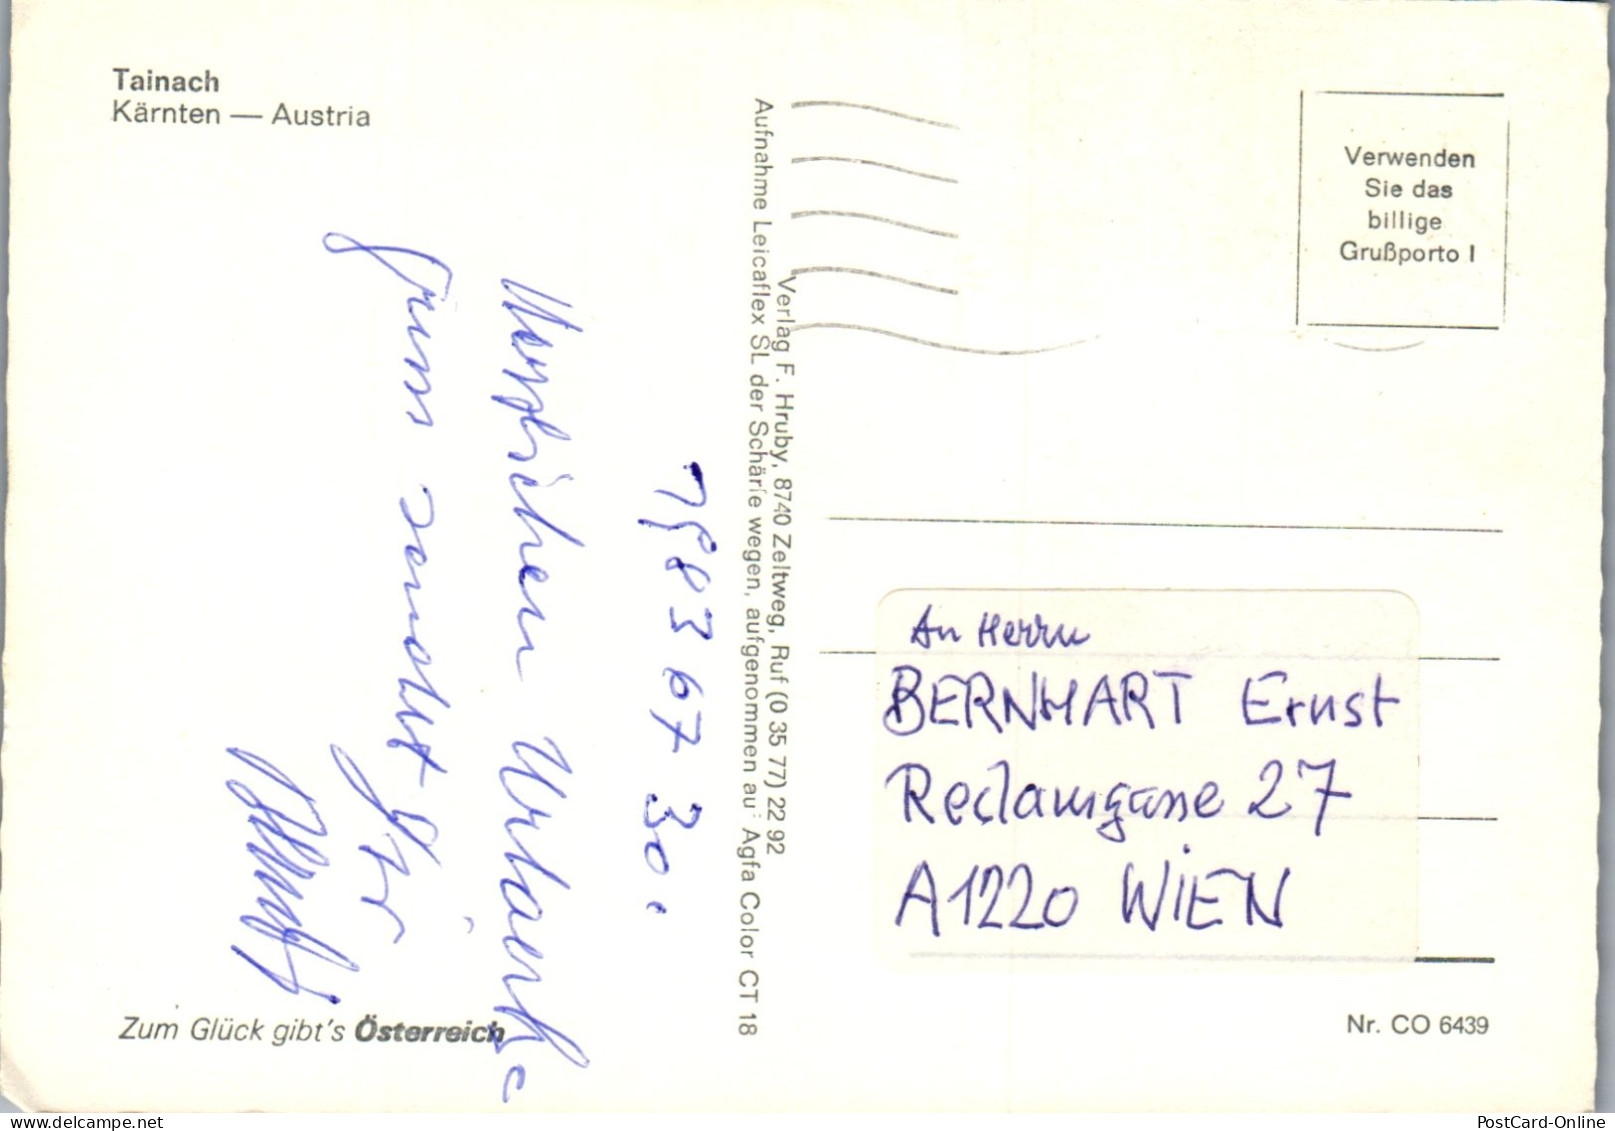 Tainach
Kärnten — Austria
Verwenden
Sie das
billige
Grußporto !
Verlag F. Hruby, 8740 Zeltweg, Ruf (0 35 77) 22 92
Aufnahme Leicaflex SL der Schärfe wegen, aufgenommen auf Agfa Color CT 18
83 67 30.
Herzlichen Urlaubs
gruss sendet
Ihr
An Herrn
BERNHART Ernst
Reclamgasse 27
A1220 WIEN
Zum Glück gibt's Österreich
Nr. CO 6439
PostCard-Online